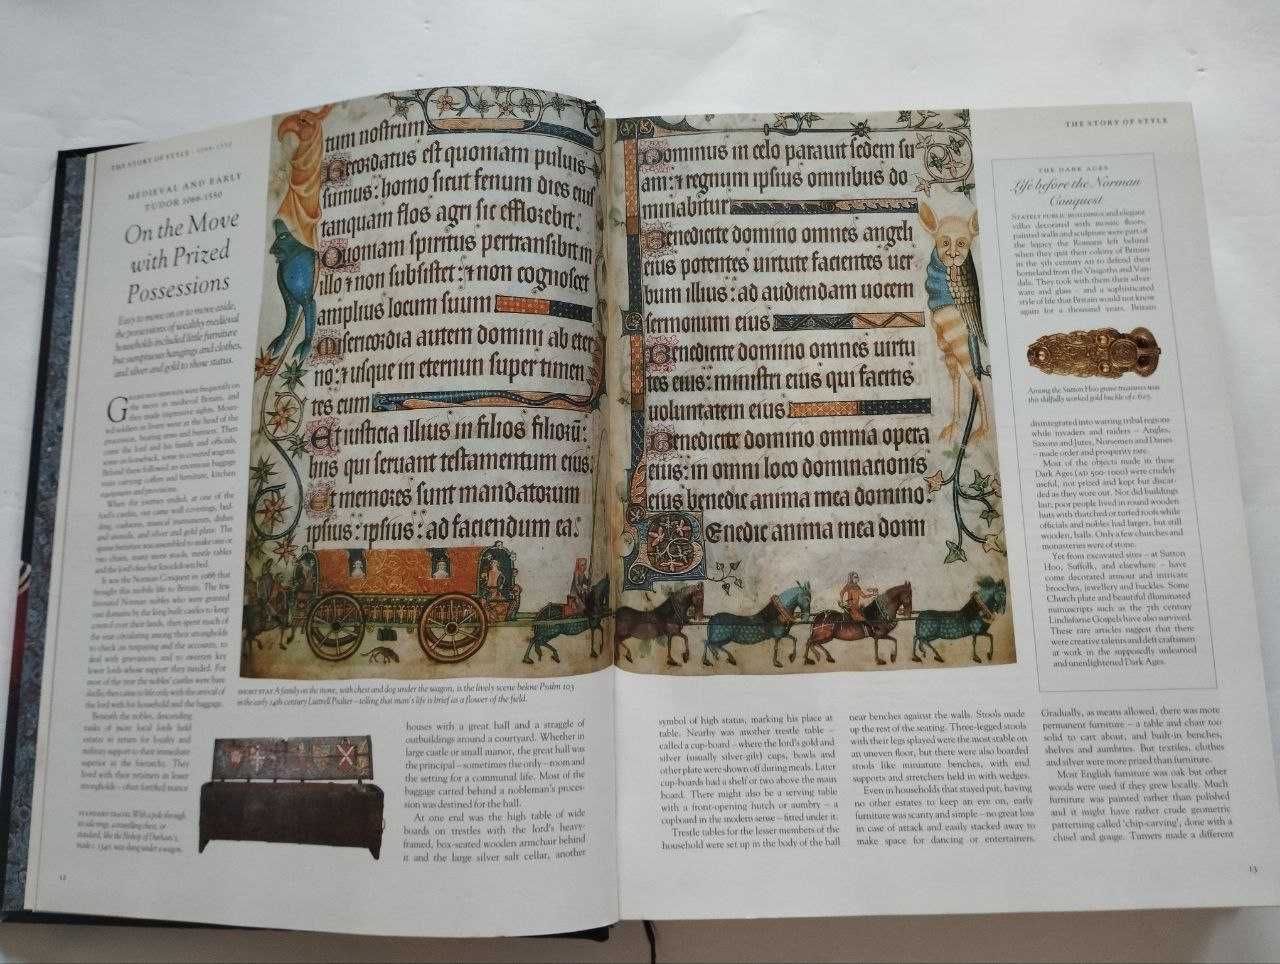 THE STORY OF STYLE · 1066–1550
MEDIEVAL AND EARLY
TUDOR 1066-1550
On the Move
with Prized
Possessions
Easy to move on or to move aside,
the possessions of wealthy medieval
households included little furniture
but sumptuous hangings and clothes,
and silver and gold to show status.
GREAT HOUSEHOLDS were frequently on
the move in medieval Britain, and
they made impressive sights. Moun-
ted soldiers in livery went at the head of the
procession, bearing arms and banners. Then
came the lord and his family and officials,
some on horseback, some in covered wagons.
Behind them followed an enormous baggage
train carrying coffers and furniture, kitchen
equipment and provisions.
When the journey ended, at one of the
lord's castles, out came wall coverings, bed-
ding, cushions, musical instruments, dishes
and utensils, and silver and gold plate. The
same furniture was assembled to make one or
two chairs, many more stools, trestle tables
and the lord's fine but knockdown bed.
It was the Norman Conquest in 1066 that
brought this mobile life to Britain. The few
favoured Norman nobles who were granted
vast domains by the king built castles to keep
control over their lands, then spent much of
the year circulating among their strongholds
to check on rents and the accounts, to
deal with grievances, and to oversee key
lower lords whose support they needed. For
most of the year the nobles' castles were bare
shells; they came to life only with the arrival of
the lord with his household and the baggage.
Beneath the nobles, descending
ranks of more local lords held
estates in return for loyalty and
military support to their immediate
superior in the hierarchy. They
lived with their retainers in lesser
strongholds – often fortified manor
STANDARD TRAVEL With a pole through
its side rings, a travelling chest, or
standard, like the Bishop of Durham's,
made c. 1340, was slung under a wagon.
12
tum nostrum
Recordatus est quoniam puluis
sumus: homo sicut fenum dies eius
tanquam flos agri sic efflorebit:
Quoniam spiritus pertransibit in
illo ⁊ non subsistet: ⁊ non cognoscet
amplius locum suum
Misericordia autem domini ab eter
no: ⁊ usque in eternum super timen
tes eum
Et iusticia illius in filios filiorū:
hiis qui seruant testamentum eius:
Et memores sunt mandatorum
ipsius: ipsius: ad faciendum ea.
SHORT STAY A family on the move, with chest and dog under the wagon, is the lively scene below Psalm 103
in the early 14th century Luttrell Psalter – telling that man's life is brief as a flower of the field.
houses with a great hall and a straggle of
outbuildings around a courtyard. Whether in
large castle or small manor, the great hall was
the principal – sometimes the only – room and
the setting for a communal life. Most of the
baggage carted behind a nobleman's proces-
sion was destined for the hall.
At one end was the high table of wide
boards on trestles with the lord's heavy-
framed, box-seated wooden armchair behind
it and the large silver salt cellar, another
Dominus in celo parauit sedem su
am: ⁊ regnum ipsius omnibus do
minabitur
Benedicite domino omnes angeli
eius potentes uirtute facientes uer
bum illius: ad audiendam uocem
sermonum eius
Benedicite domino omnes uirtu
tes eius: ministri eius qui facitis
uoluntatem eius
Benedicite domino omnia opera
eius: in omni loco dominacionis
eius benedic anima mea domino:
Benedic anima mea domi
symbol of high status, marking his place at
table. Nearby was another trestle table –
called a cup-board – where the lord's gold and
silver (usually silver-gilt) cups, bowls and
other plate were shown off during meals. Later
cup-boards had a shelf or two above the main
board. There might also be a serving table
with a front-opening hutch or aumbry – a
cupboard in the modern sense – fitted under it.
Trestle tables for the lesser members of the
household were set up in the body of the hall
near benches against the walls. Stools made
up the rest of the seating. Three-legged stools
with their legs splayed were the most stable on
an uneven floor, but there were also boarded
stools like miniature benches, with end
supports and stretchers held in with wedges.
Even in households that stayed put, having
no other estates to keep an eye on, early
furniture was scarcity and simple – no great loss
in case of attack and easily stacked away to
make space for dancing or entertainers.
Gradually, as means allowed, there was more
permanent furniture – a table and chair too
solid to cart about, and built-in benches,
shelves and aumbries. But textiles, clothes
and silver were more prized than furniture.
Most English furniture was oak but other
woods were used if they grew locally. Much
furniture was painted rather than polished
and it might have rather crude geometric
patterning called 'chip-carving', done with a
chisel and gouge. Turners made a different
THE STORY OF STYLE
THE DARK AGES
Life before the Norman
Conquest
STATELY PUBLIC BUILDINGS and elegant
villas decorated with mosaic floors,
painted walls and sculpture were part of
the legacy the Romans left behind
when they quit their colony of Britain
in the 5th century AD to defend their
homeland from the Visigoths and Van-
dals. They took with them their silver
ware and glass – and a sophisticated
style of life that Britain would not know
again for a thousand years. Britain
Among the Sutton Hoo grave treasures was
this skilfully worked gold buckle of c.625.
disintegrated into warring tribal regions
while invaders and raiders – Angles,
Saxons and Jutes, Norsemen and Danes
– made order and prosperity rare.
Most of the objects made in these
Dark Ages (AD 500-1000) were crudely
useful, not prized and kept but discar-
ded as they wore out. Nor did buildings
last; poor people lived in round wooden
huts with thatched or turfed roofs while
officials and nobles had larger, but still
wooden, halls. Only a few churches and
monasteries were of stone.
Yet from excavated sites – at Sutton
Hoo, Suffolk, and elsewhere – have
come decorated armour and intricate
brooches, jewellery and buckles. Some
Church plate and beautiful illuminated
manuscripts such as the 7th century
Lindisfarne Gospels have also survived.
These rare articles suggest that there
were creative talents and deft craftsmen
at work in the supposedly unlearned
and unenlightened Dark Ages.
13